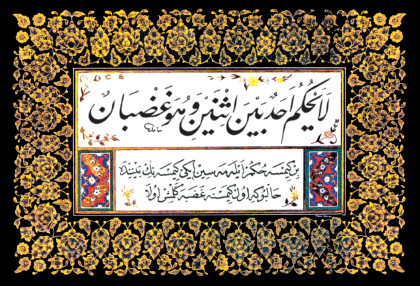 لا يحكم احد بين اثنين وهو غضبان
بر كيمسه حكم ايلمه سين ايكى كيمسه نك بيننده
حالبوكه اول كيمسه غضبه كلمش اولا